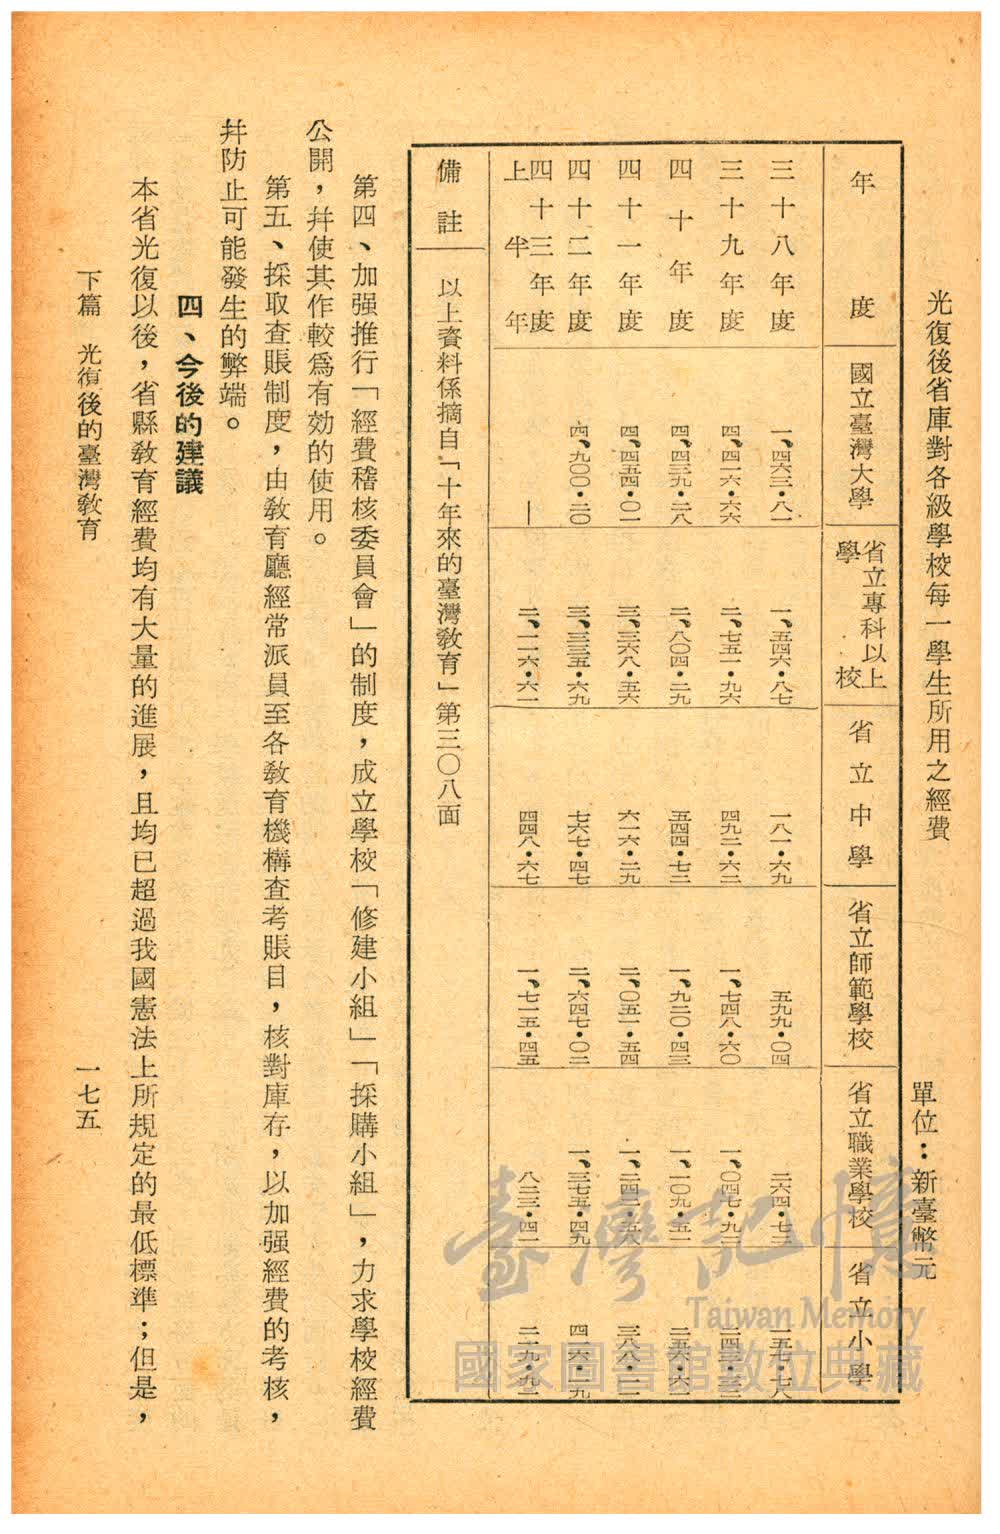 光復後省庫對各級學校每一學生所用之經費
單位：新臺幣元
年度
國立臺灣大學
省立專科以上學校
省立中學
省立師範學校
省立職業學校
省立小學
三十八年度
一、四六三・八一
一、五四六・八七
一八一・六九
五九九・〇四
二六四・七三
一五七・七八
三十九年度
四、四一六・六六
二、七五一・九六
四九二・六二
一、七四八・六〇
一、〇四七・九三
四十年度
四、四三九・二八
二、八〇四・二九
五四四・七二
一、九二〇・四三
一、一〇九・五二
四十一年度
四、四五四・〇一
三、三六八・五六
六一六・二九
二、〇五一・五四
四十二年度
四、九〇〇・二〇
三、三三五・六九
七六七・四七
二、六四七・〇二
一、三七五・四九
四二六・一九
四十三年度上半年
—
二、一一六・六一
四四八・六七
一、七一五・四五
八二三・四一
二二九・九二
備註
以上資料係摘自「十年來的臺灣教育」第三〇八面
第四、加强推行「經費稽核委員會」的制度，成立學校「修建小組」「採購小組」，力求學校經費
公開，幷使其作較爲有効的使用。
第五、採取查賬制度，由教育廳經常派員至各教育機構查考賬目，核對庫存，以加强經費的考核，
幷防止可能發生的弊端。
四、今後的建議
本省光復以後，省縣教育經費均有大量的進展，且均已超過我國憲法上所規定的最低標準；但是，
下篇　光復後的臺灣教育
一七五
臺灣記憶
Taiwan Memory
國家圖書館數位典藏